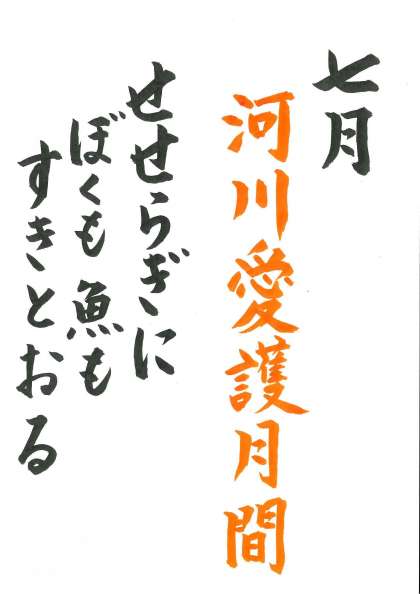 七月
河川愛護月間
せせらぎに
ぼくも魚も
すきとおる